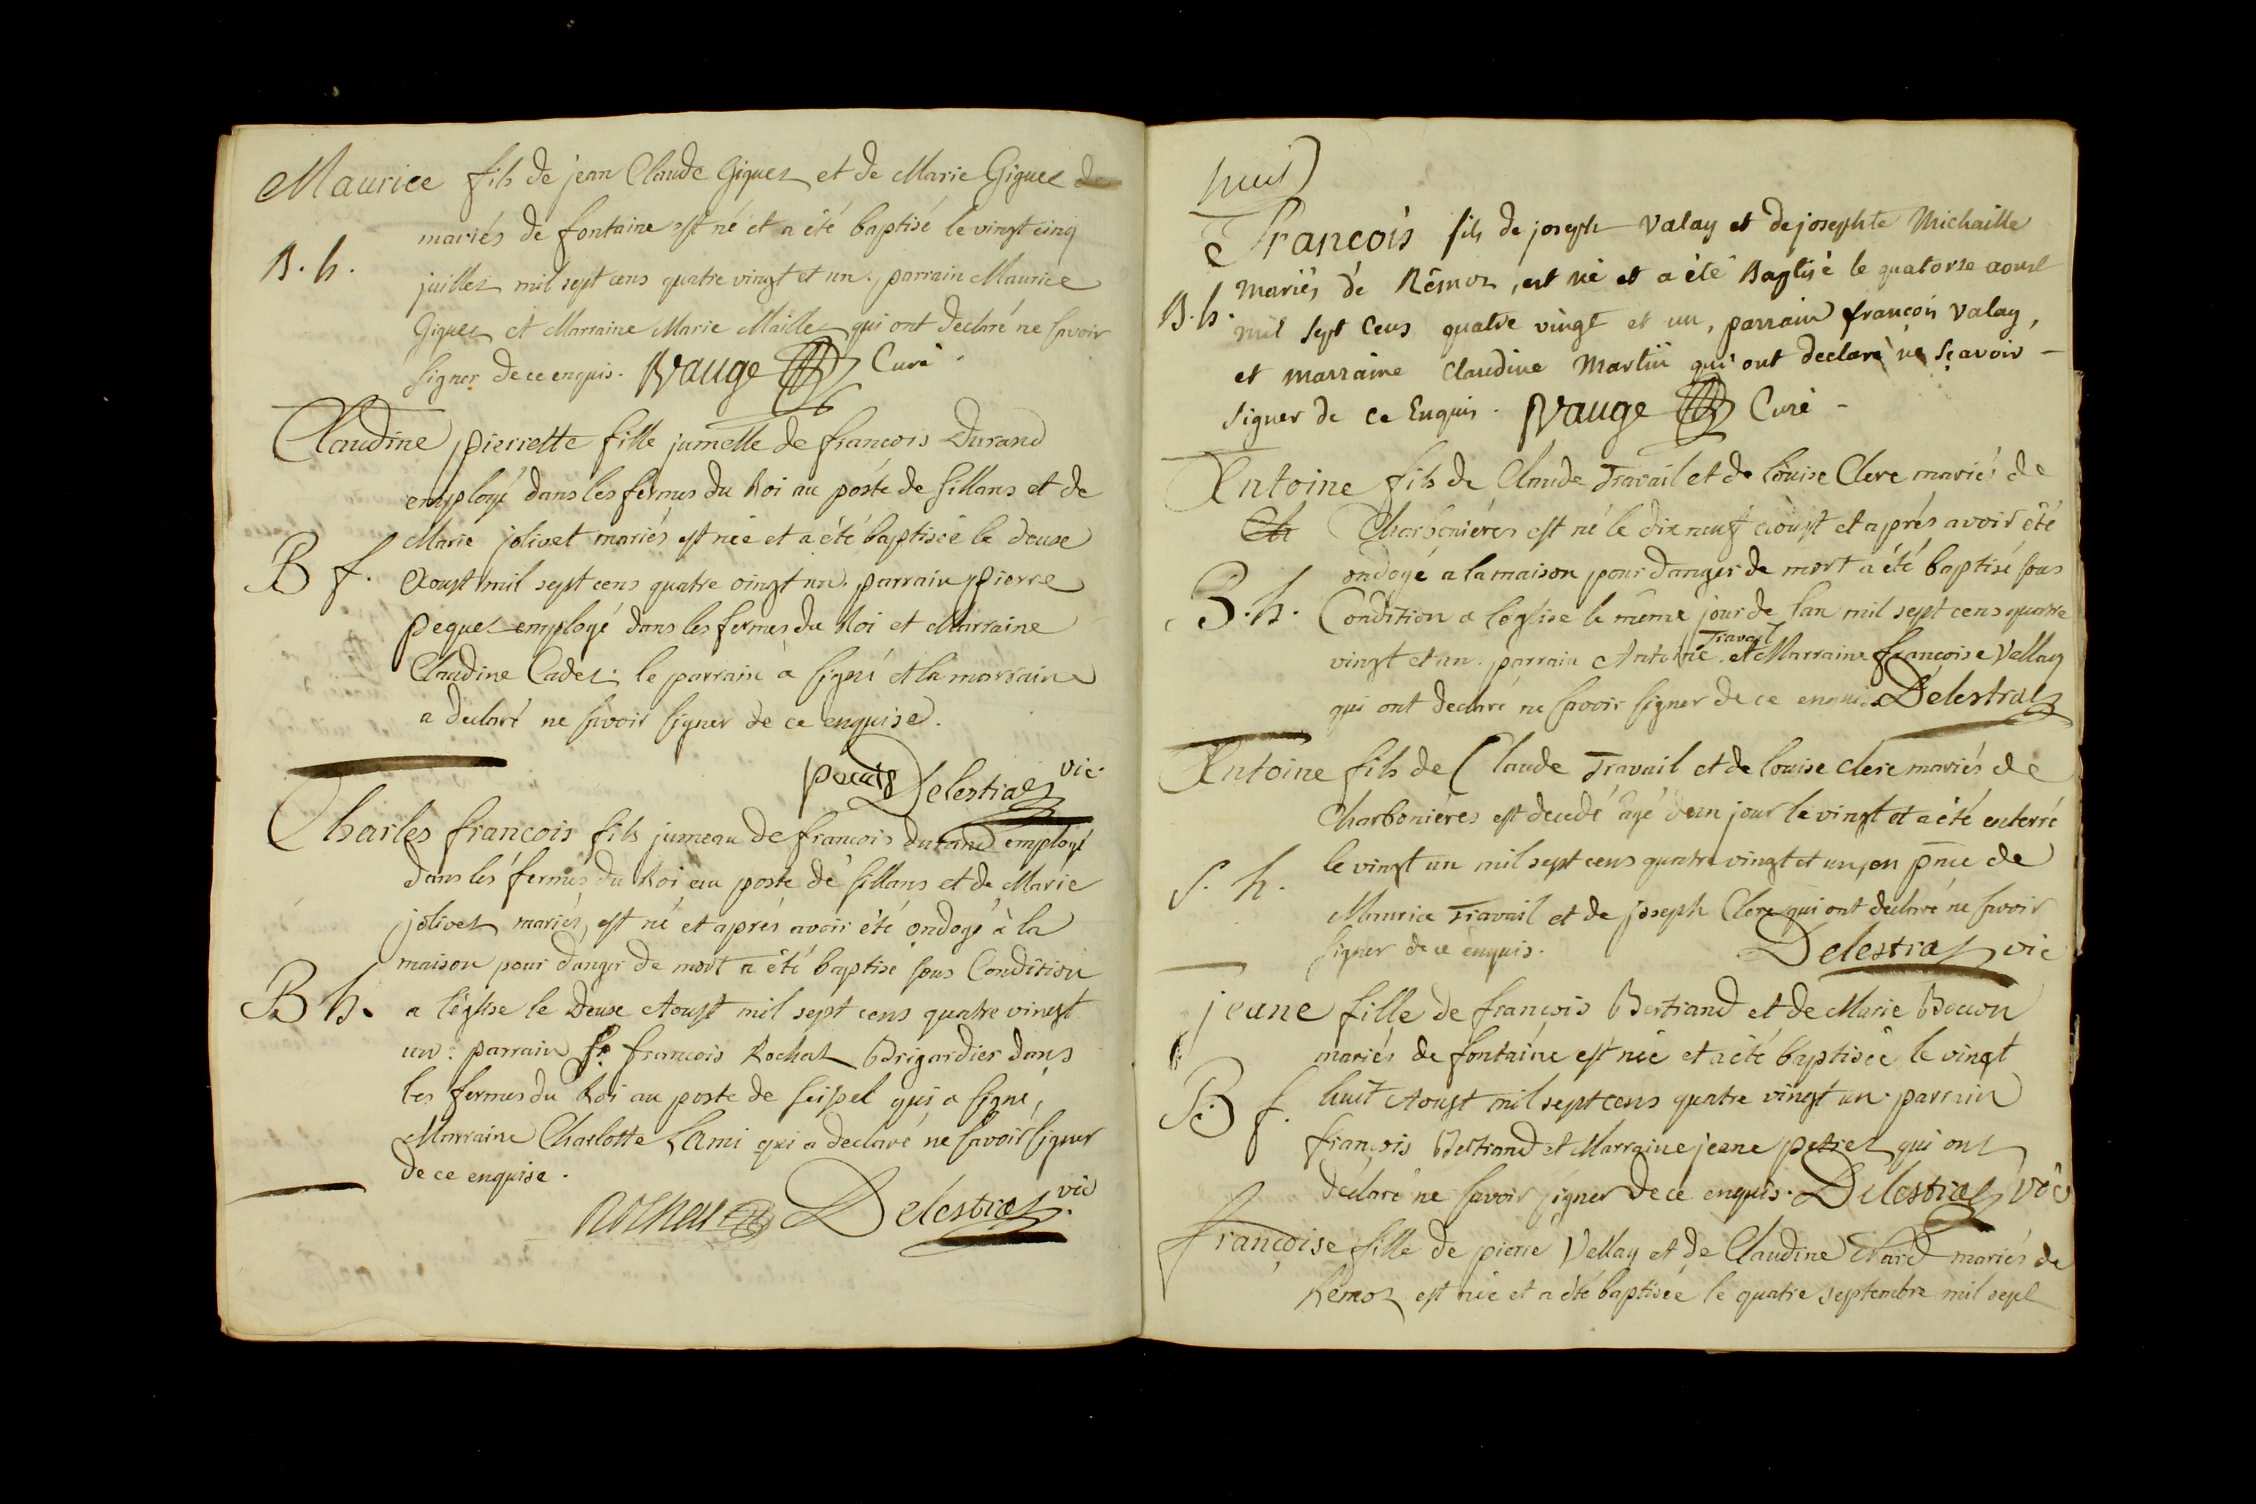 Maurice fils de jean Claude Giguet et de Marie Giguet
mariés de fontaine est né et a été baptisé le vingt cinq
B. h.
juillet mil sept cens quatre vingt et un. parrain Maurice
Giguet et Marraine Marie Maillet qui ont declaré ne savoir
signer de ce enquis. Vauge Curé
Claudine pierrette fille jumelle de francois Durand
employé dans les fermes du Roi au poste de Sillans et de
Marie jolivet mariés est née et a été baptisée le deuse
B f.
Aoust mil sept cens quatre vingt un. parrain pierre
peguet employé dans les fermes du Roi et Marraine
Claudine Cadet. le parrain à signé et la marraine
a declaré ne savoir signer de ce enquise.
Delestraz vic.
Charles francois fils jumeau de francois durand employé
dans les fermes du Roi au poste de Sillans et de Marie
jolivet mariés, est né et aprés avoir été ondoyé à la
maison pour danger de mort a été baptisé sous Condition
B h.
a l'église le Deuse Aoust mil sept cens quatre vingt
un: parrain Sr. francois Rochat Brigardier dans
les fermes du Roi au poste de Seissel qui a signé,
Marraine Charlotte Lami qui a declaré ne savoir signer
de ce enquise.
Rochat Delestraz vic.
huit
François fils de joseph Valay et de josephte Michaille
mariés de Rémoz, est né et a été Baptisé le quatorse aoust
B. h.
mil sept Cens quatre vingt et un, parrain françois Valay,
et marraine Claudine Martin qui ont declaré ne sçavoir -
signer de ce Enquis. Vauge Curé -
Antoine fils de Claude Travail et de Louise Clere mariés de
Ch Charbonières est né le dix neuf aoust et aprés avoir été
ondoyé a la maison pour danger de mort a été baptisé sous
B. h.
Condition a l'église le même jour de l'an mil sept cens quatre
Travail
vingt et un. parrain Antoine et Marraine françoise Vallay
qui ont declaré ne savoir signer de ce enquis. Delestraz
Antoine fils de Claude Travail et de louise clere mariés de
Charbonières est decedé agé d'un jour le vingt et a été enterré
le vingt un mil sept cens quatre vingt et un, en pnce de
S. h.
Maurice Travail et de joseph Clere qui ont declaré ne savoir
signer de ce enquis. Delestraz vic
jeane fille de françois Bertrand et de Marie Bocon
mariés de fontaine est née et a été baptisée le vingt
B f.
huit Aoust mil sept cens quatre vingt un. parrain
françois Bertrand et Marraine jeane petret qui ont
declaré ne savoir signer de ce enquis. Delestraz vic
françoise fille de pierre Vallay et de Claudine mariés de
Rémoz est née et a été baptisée le quatre septembre mil sept